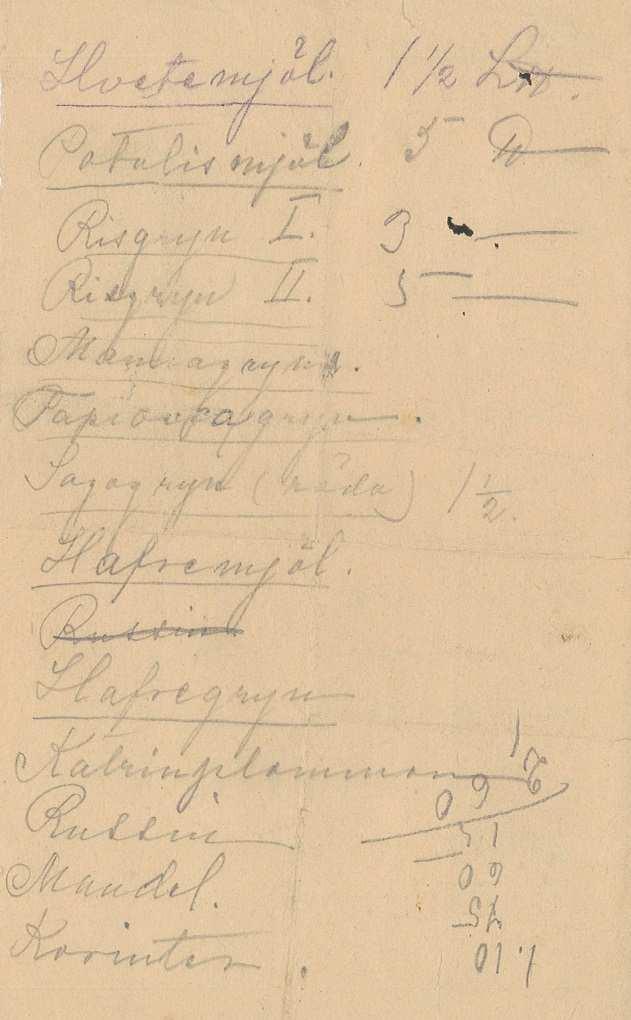 Hvetemjöl. 1 1/2 L℔.
Potatismjöl. 5 ℔
Risgryn I. 3 —
Risgryn II. 5 —
Mannagryn.
Tapiocagryn.
Sagogryn (röda) 1 1/2.
Hafremjöl.
Russin
Hafregryn
Katrinplommon
Russin
Mandel.
Korinter.
1.10
75
60
15
2 60